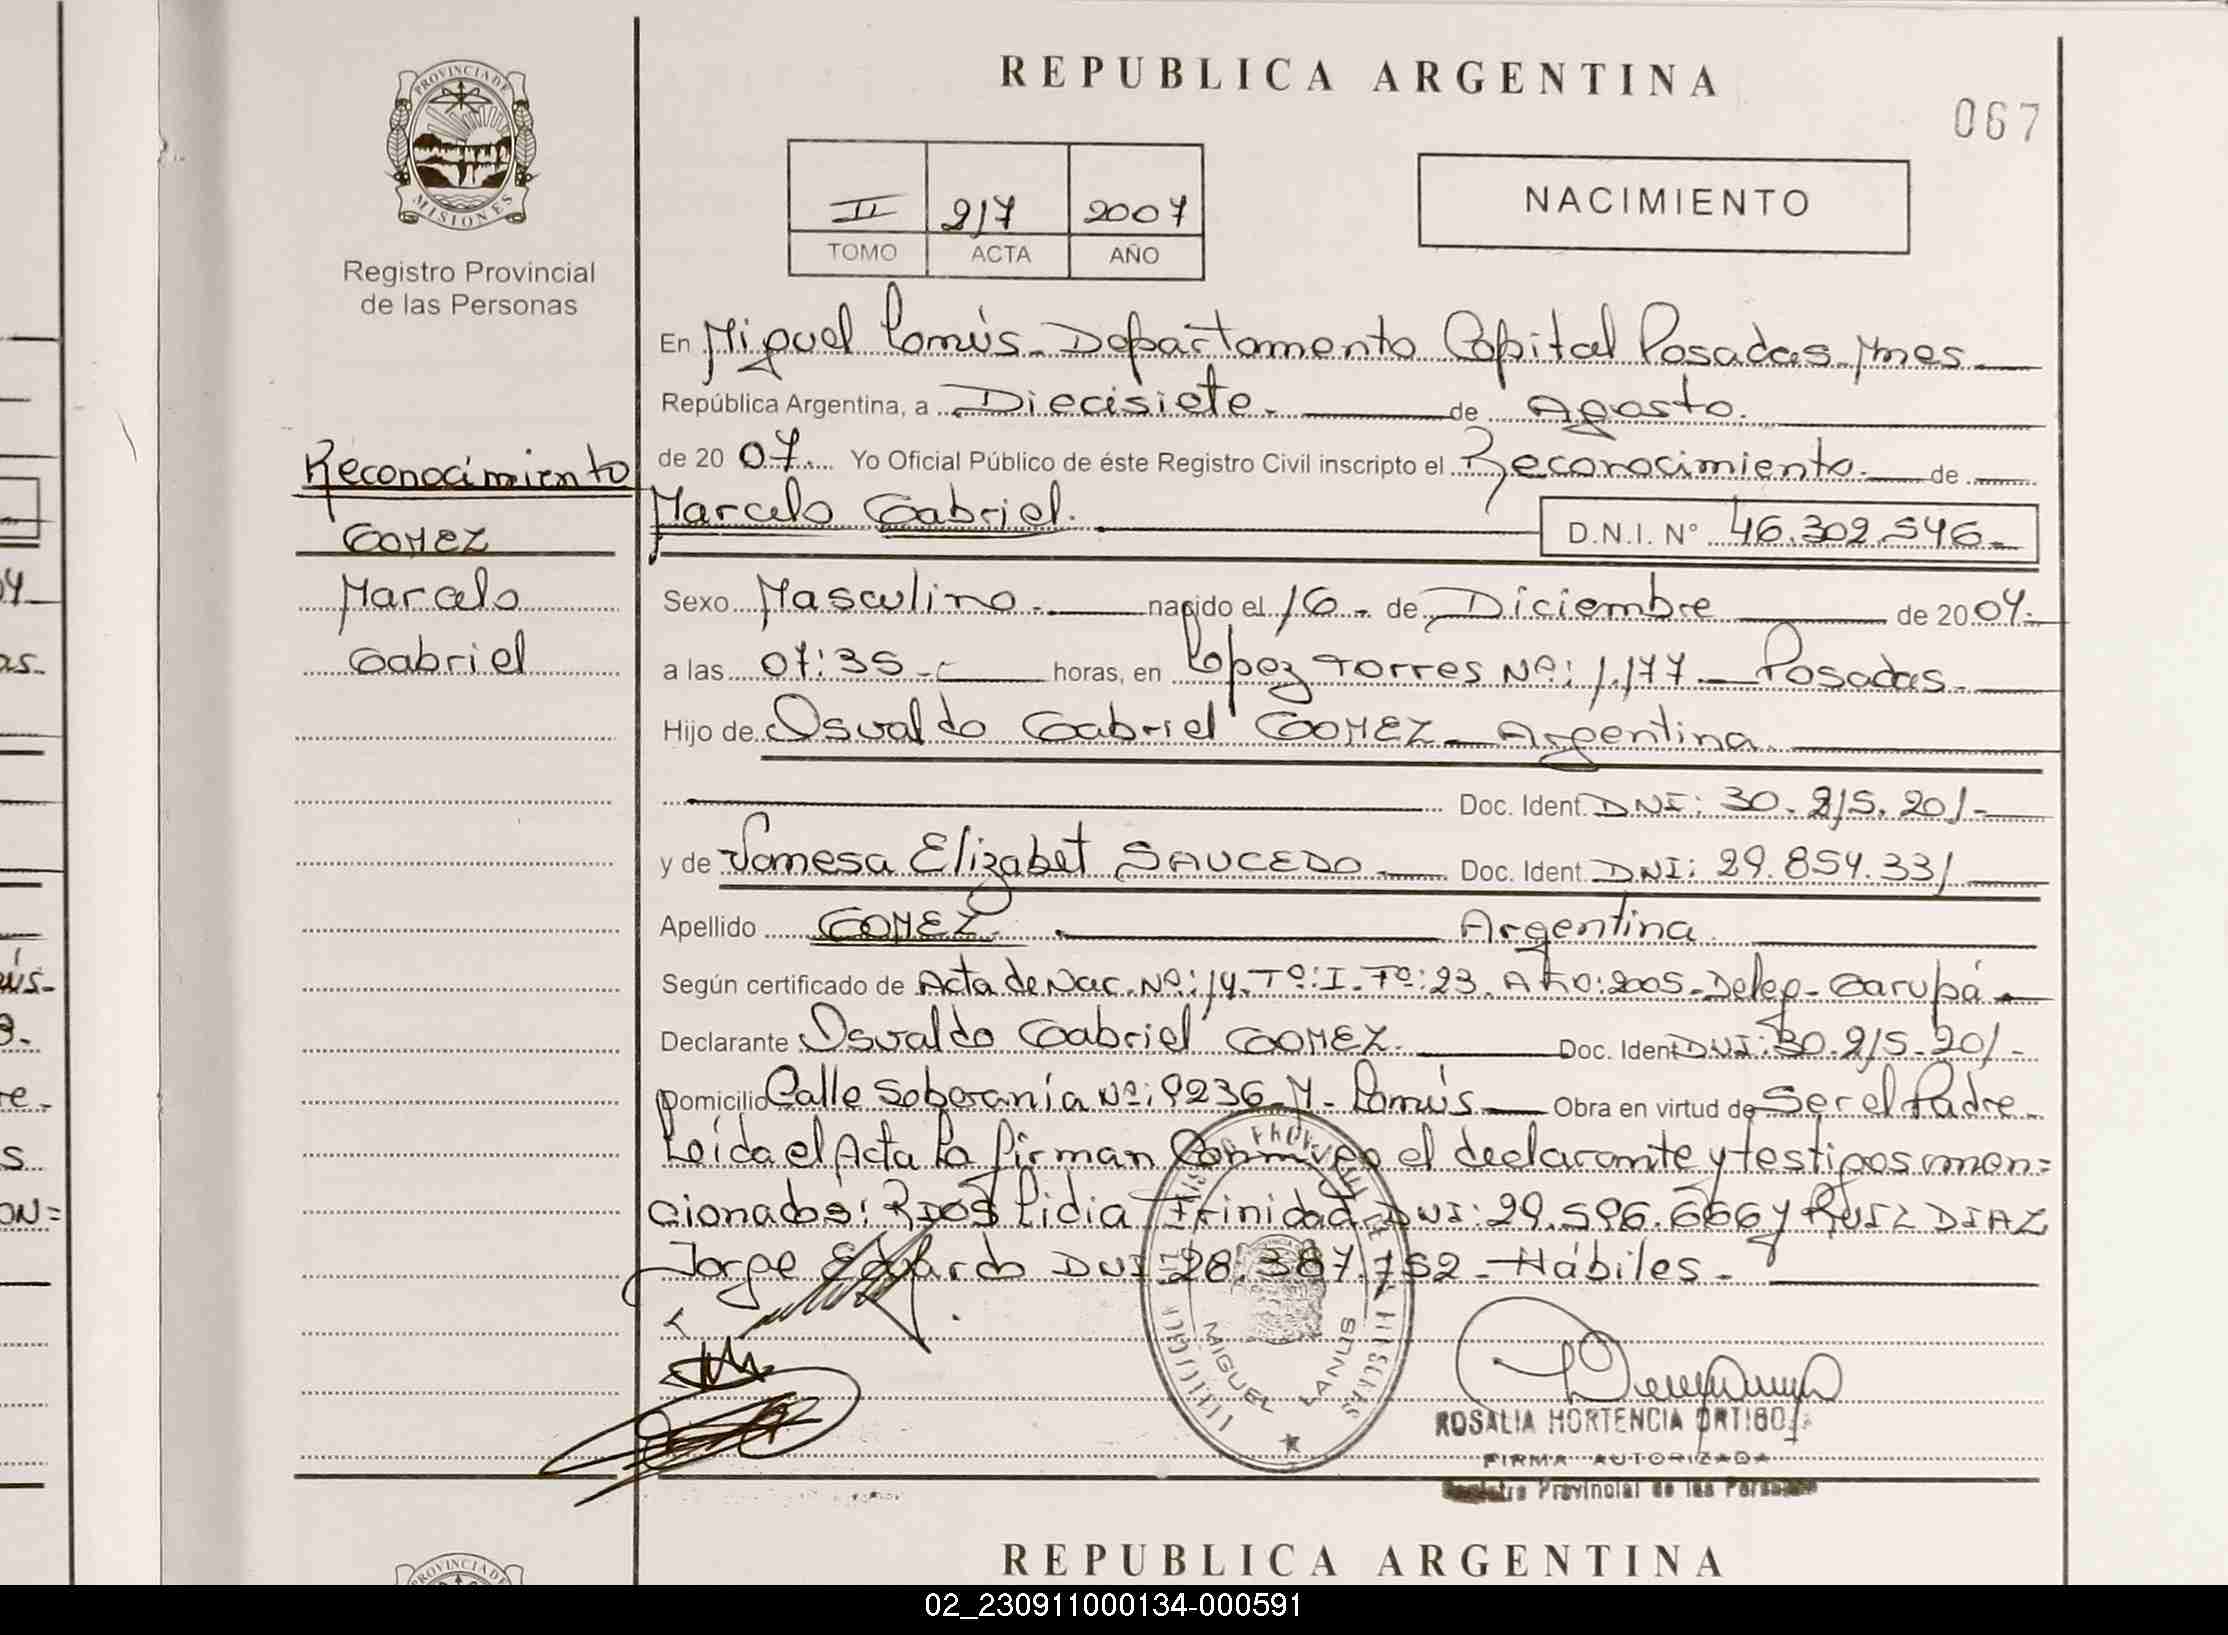 REPUBLICA ARGENTINA
067
PROVINCIA DE
MISIONES
Registro Provincial
de las Personas
II 217 2007
TOMO ACTA AÑO
NACIMIENTO
En Miguel Lanús - Departamento Capital Posadas - Mnes
República Argentina, a Diecisiete. de Agosto.
de 20 07. Yo Oficial Público de éste Registro Civil inscripto el Reconocimiento. de
Marcelo Gabriel.
D.N.I. N° 46.302.546.-
Reconocimiento
GOMEZ
Marcelo
Gabriel
Sexo Masculino. nacido el 16 - de Diciembre de 20 04.-
a las 07:35 - horas, en Lopez Torres Nº: 1.177 - Posadas.
Hijo de Osvaldo Gabriel GOMEZ - Argentina.
Doc. Ident. DNI: 30.215.201-
y de Vanesa Elizabet SAUCEDO Doc. Ident. DNI: 29.854.331
Apellido GOMEZ. Argentina.
Según certificado de Acta de Nac. Nº: 14. Tº: I. Fº: 23. Año: 2005 - Deleg - Garupá -
Declarante Osvaldo Gabriel GOMEZ. Doc. Ident DNI: 30.215.201-
Domicilio Calle Soberanía Nº: 9236 - M - Lanús Obra en virtud de Ser el Padre -
Leída el Acta la firman Conmigo el declarante y testigos men=
cionados: RIOS Lidia Trinidad DNI: 29.596.666 y RUIZ DIAZ
Jorge Eduardo DNI 28.387.752 - Hábiles -
MIGUEL LANUS
ROSALIA HORTENCIA ORTIGOZA
FIRMA AUTORIZADA
Registro Provincial de las Personas
REPUBLICA ARGENTINA
PROVINCIA D
02_230911000134-000591